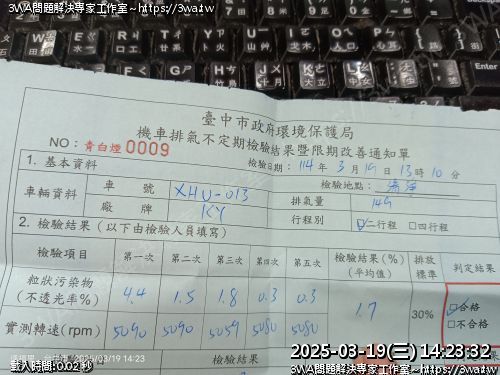 3WA問題解決專家工作室~https://3wa.tw
臺中市政府環境保護局
機車排氣不定期檢驗結果暨限期改善通知單
NO：青白煙0009
檢驗日期：114年3月19日13時10分
1. 基本資料
檢驗地點：
車輛資料
車號 XHU-013
排氣量 149
廠牌 KY
行程別 ☑二行程 □四行程
2. 檢驗結果（以下由檢驗人員填寫）
檢驗項目 第一次 第二次 第三次 第四次 第五次 檢驗結果(%)(平均值) 排放標準 判定結果
粒狀污染物(不透光率%) 4.4 1.5 1.8 0.3 0.3 1.7 30% ☑合格
□不合格
實測轉速(rpm) 5090 5090 5059 5080 5080
2025-03-19(三) 14:23:32
載入時間:0.02秒
2025/03/19 14:23
檢驗結果
3WA問題解決專家工作室~https://3wa.tw